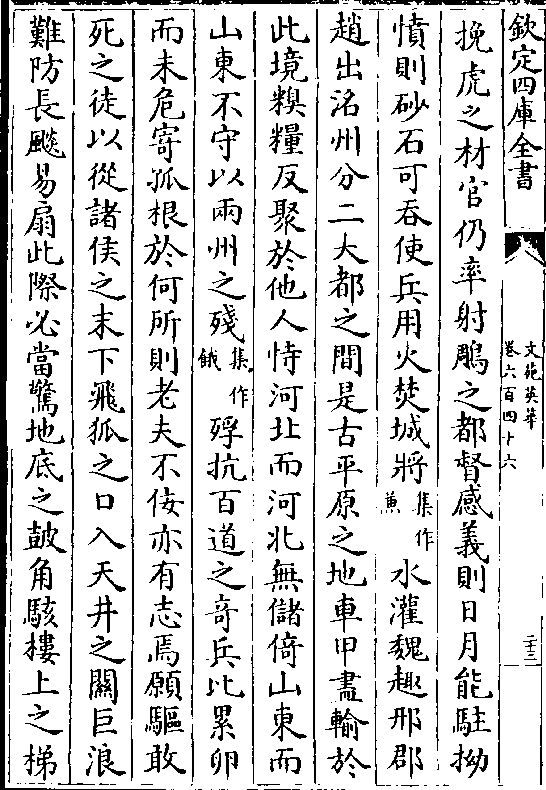 欽定四庫全書
文苑英華
卷六百四十六
二十三
挽虎之材官仍率射鵰之都督感義則日月能駐拗
憤則砂石可吞使兵用火焚城將集作兼水灌魏趣邢郡
趙出洺州分二大都之間是古平原之地車甲盡輸於
此境糗糧反聚於他人恃河北而河北無儲倚山東而
山東不守以兩州之殘集作餓殍抗百道之奇兵比累卵
而未危寄孤根於何所則老夫不佞亦有志焉願驅敢
死之徒以從諸侯之末下飛狐之口入天井之關巨浪
難防長飈易扇此際必當驚地底之鼓角駭樓上之梯